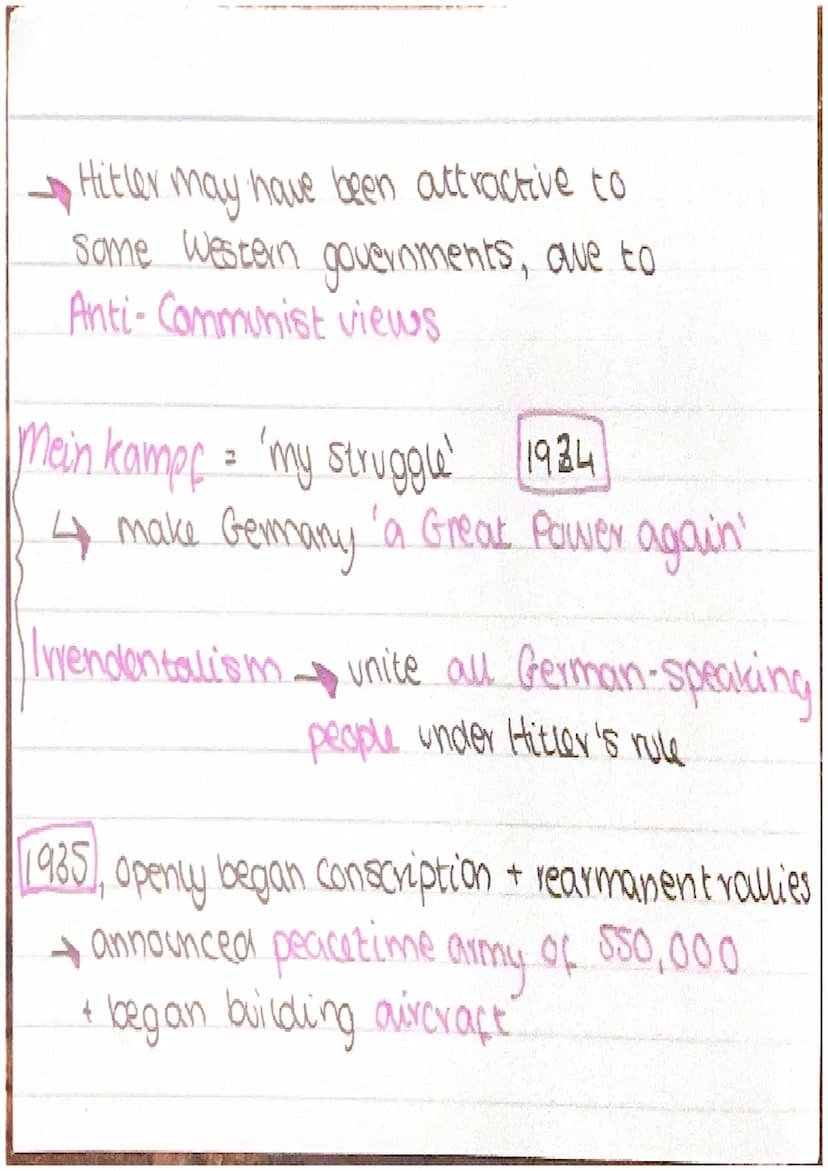 → Hitler may have been attractive to
some Western governments, due to
Anti-Communist views
Mein kampf = 'my struggle' 1934
↳ make Germany 'a Great Power again'
Irrendentalism → unite all German-speaking
people under Hitler's rule
1935, openly began conscription + rearmanent rallies
→ announced peacetime army of 550,000
+ began building aircraft